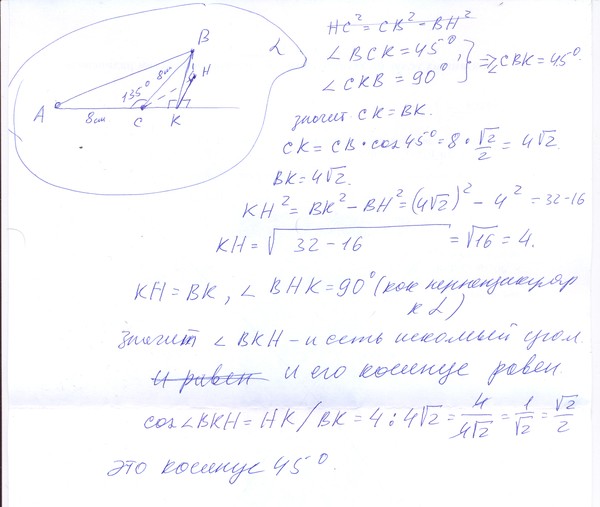 B
α
135° 8см
H
A
8см
C
K
HC² = CB² - BH²
∠BCK = 45°
∠CKB = 90° } ⇒ ∠CBK = 45°
значит CK = BK.
CK = CB · cos 45° = 8 · √2/2 = 4√2
BK = 4√2.
KH² = BK² - BH² = (4√2)² - 4² = 32-16
KH = √32-16 = √16 = 4.
KH = BK, ∠BHK = 90° (как перпендикуляр
к α)
Значит ∠BKH - и есть искомый угол.
и равен и его косинус равен
cos∠BKH = HK/BK = 4 : 4√2 = 4/4√2 = 1/√2 = √2/2
это косинус 45°.